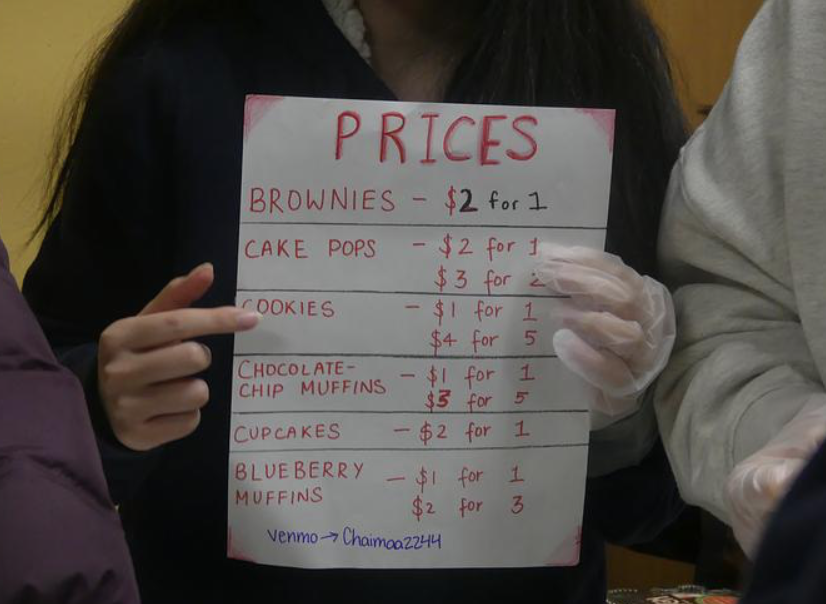 PRICES
BROWNIES - $2 for 1
CAKE POPS - $2 for 1
$3 for 2
COOKIES - $1 for 1
$4 for 5
CHOCOLATE-
CHIP MUFFINS - $1 for 1
$3 for 5
CUPCAKES - $2 for 1
BLUEBERRY
MUFFINS - $1 for 1
$2 for 3
venmo → Chaimaa2244